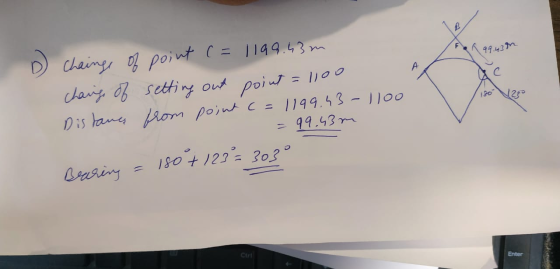 D) Chainge of point C = 1199.43m
Chaing of setting out point = 1100
Distance from point C = 1199.43 - 1100
= 99.43m
Bearing = 180° + 123° = 303°
B
99.43m
A
C
180°
123°
Enter